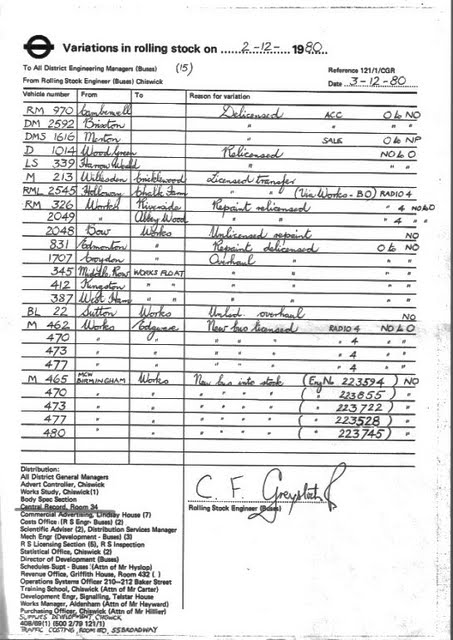 Variations in rolling stock on 2-12- 1980
To All District Engineering Managers (Buses) (15) Reference 121/1/CGR
From Rolling Stock Engineer (Buses) Chiswick Date 3-12-80
Vehicle number From To Reason for variation
RM 970 Camberwell Delicensed ACC O to NO
DM 2592 Brixton " " "
DMS 1616 Merton " SALE O to NP
D 1014 Wood Green Relicensed NO to O
LS 339 Harrow Weald "
M 213 Willesden Cricklewood Licensed transfer
RML 2545 Holloway Chalk Farm " " (Via Works - BO) RADIO 4
RM 326 Works Riverside Repaint relicensed " 4 NO to O
2049 " Abbey Wood " " " 4 "
2048 Bow Works Unlicensed repaint NO
831 Edmonton " Repaint delicensed O to NO
1707 Croydon " Overhaul " " "
345 Middx. Row WORKS FLOAT " " "
412 Kingston " " " " "
387 West Ham " " " " "
BL 22 Sutton Works Unlcd overhaul NO
M 462 Works Edgware New bus licensed RADIO 4 NO to O
470 " " " " " " 4 "
473 " " " " " " 4 "
477 " " " " " " 4 "
M 465 MCW BIRMINGHAM Works New bus into stock (Eng No 223594) NO
470 " " " " " " ( " 223855) "
473 " " " " " " ( " 223722) "
477 " " " " " " ( " 223528) "
480 " " " " " " ( " 223745) "
Distribution:
All District General Managers
Advert Controller, Chiswick
Works Study, Chiswick (1)
Body Spec Section
Central Record, Room 34
Commercial Advertising, Lindsay House (7)
Costs Office (R S Engr- Buses) (2)
Scientific Adviser (2), Distribution Services Manager
Mech Engr (Development - Buses) (3)
R S Licensing Section (5), R S Inspection
Statistical Office, Chiswick (2)
Director of Development (Buses)
Schedules Supt - Buses (Attn of Mr Hyslop)
Revenue Office, Griffith House, Room 432 ( )
Operations Systems Officer 210-212 Baker Street
Training School, Chiswick (Attn of Mr Carter)
Development Engr, Signalling, Telstar House
Works Manager, Aldenham (Attn of Mr Hayward)
Purchasing Officer, Chiswick (Attn of Mr Hillier)
SUPPLIES DEVELOPMENT CHISWICK
408/89(1) (500 2/79 121/1)
TRAFFIC COSTING, ROOM 55 BROADWAY
C. F.
Rolling Stock Engineer (Buses)